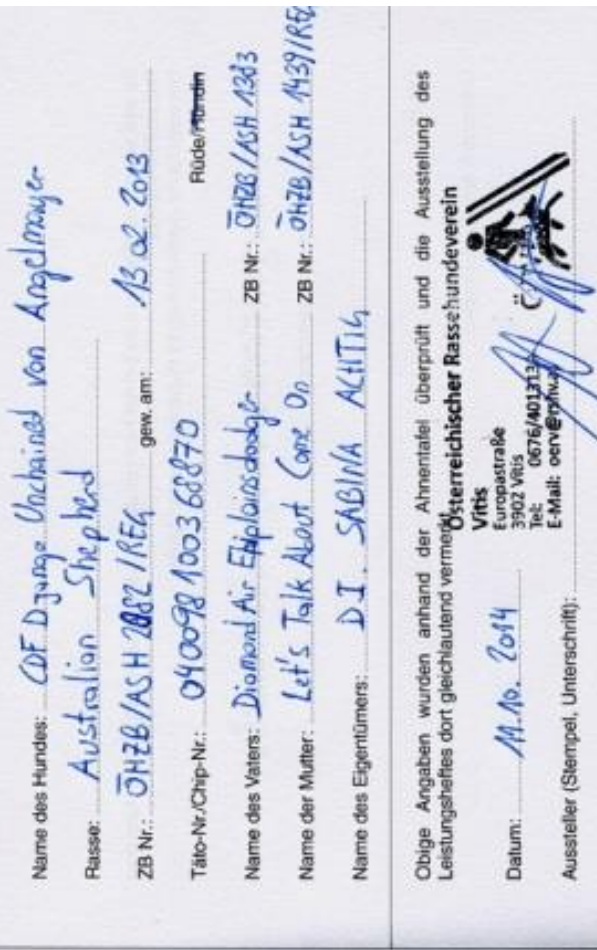 Name des Hundes: CDF Django Unchained von Angelmayer
Rasse: Australian Shepherd
ZB Nr.: ÖHZB/ASH 2882/REG gew. am: 13.02.2013
Täto-Nr./Chip-Nr.: 040098100368870 Rüde/Hündin
Name des Vaters: Diamond Air ZB Nr.: ÖHZB/ASH 1383
Name der Mutter: Let's Talk About Come On ZB Nr.: ÖHZB/ASH 1439/REG
Name des Eigentümers: D.I. SABINA ACHTIG
Obige Angaben wurden anhand der Ahnentafel überprüft und die Ausstellung des
Leistungsheftes dort gleichlautend vermerkt.
Österreichischer Rassehundeverein
Vitis
Europastraße
3902 Vitis
Tel: 0676/401313
E-Mail: oerv@
Datum: 11.10.2014
Aussteller (Stempel, Unterschrift):